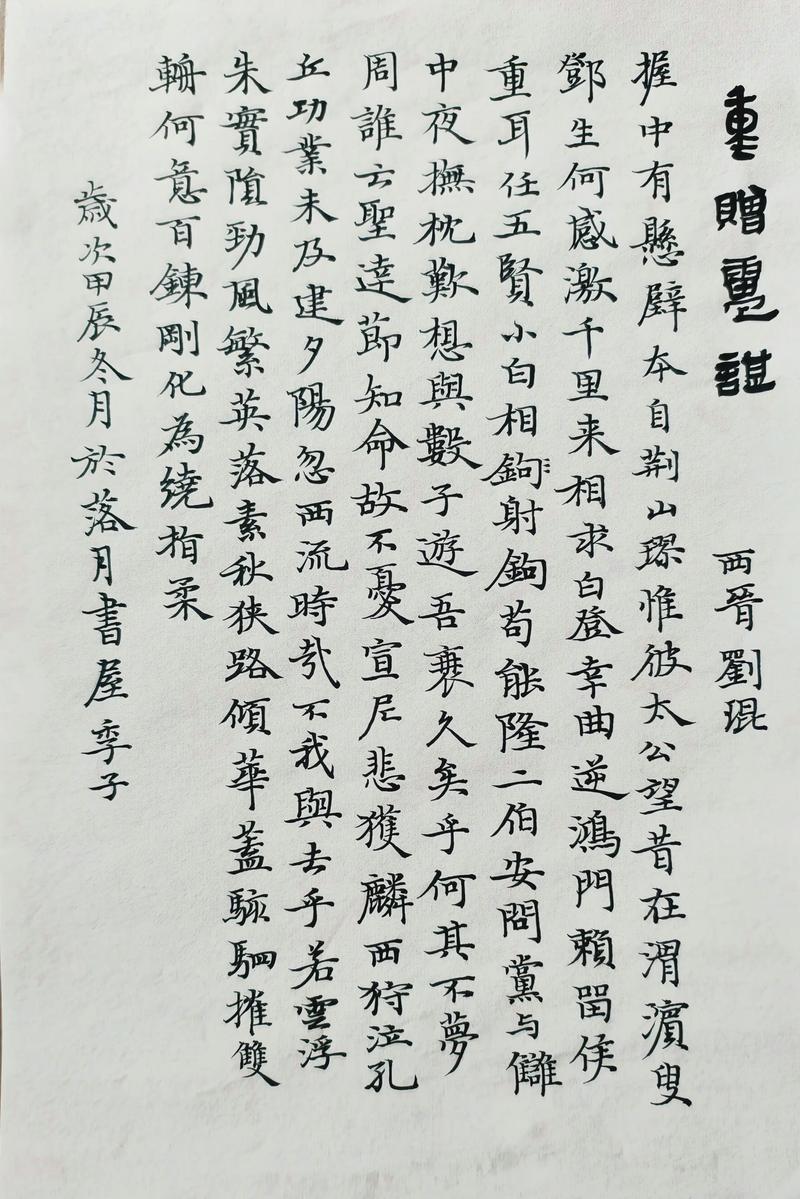 重贈盧諶
西晉劉琨
握中有懸璧本自荆山璆惟彼太公望昔在渭濱叟
鄧生何感激千里来相求白登幸曲逆鴻門賴留侯
重耳任五賢小白相鉤射鉤苟能隆二伯安問黨与讎
中夜撫枕歎想與數子遊吾衰久矣乎何其不夢
周誰云聖達節知命故不憂宣尼悲獲麟西狩泣孔
丘功業未及建夕陽忽西流時哉不我與去乎若雲浮
朱實隕勁風繁英落素秋狹路傾華蓋駭駟摧雙
輈何意百鍊剛化為繞指柔
歲次甲辰冬月於落月書屋季子